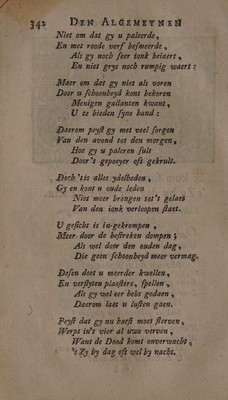 342 DEN ALGEMEYNEN
Niet om dat gy u paleerde,
En met roode verf besmeerde,
Als gy noch seer ionk belaert,
En niet grys noch rumpig waert:
Maer om dat gy niet als voren
Door u schoonheyd kont bekoren
Menigen gallanten kwant,
U te bieden syne hand:
Daerom peyst gy met veel sorgen
Van den avond tot den morgen,
Hoe gy u paleren sult
Door't gepoeyer oft gekrult.
Doch 'tis alles ydelheden,
Gy en kont u oude leden
Niet meer brengen tot's gelaet
Van den ionk verloopen staet.
U gesicht is in-gekrompen,
Meer door de bestreken dompen;
Als wel door den ouden dag,
Die geen schoonheyd meer vermag.
Desen doet u meerder kwellen,
En versyten plaesters, spellen,
Als gy wel eer hebt gedaen,
Daerom laet u lusten gaen.
Peyst dat gy nu haest moet sterven,
Werpt in't vier al uwe verven,
Want de Dood komt onverwacht,
't Zy by dag oft wel by nacht.